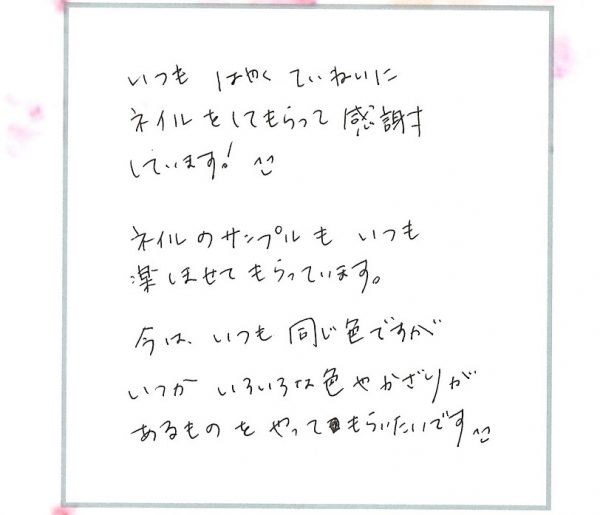 いつも はやく ていねいに
ネイルをしてもらって 感謝
しています! ^^
ネイルのサンプルも いつも
楽しませてもらっています。
今は、いつも 同じ色ですが
いつか いろいろな色やかざりが
あるものを やってもらいたいです ^^